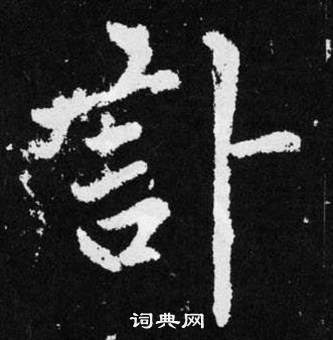 訃
词典网